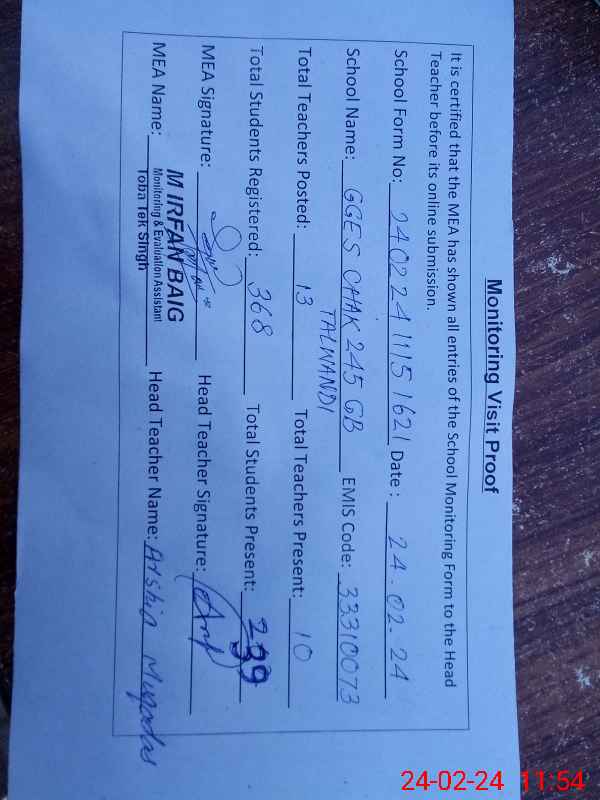 Monitoring Visit Proof
It is certified that the MEA has shown all entries of the School Monitoring Form to the Head
Teacher before its online submission.
School Form No: 240224 1115 1621 Date : 24.02.24
School Name: GGES CHAK 245 GB EMIS Code: 33310073
TALWANDI
Total Teachers Posted: 13 Total Teachers Present: 10
Total Students Registered: 368 Total Students Present: 239
MEA Signature: Head Teacher Signature:
MEA Name: M IRFAN BAIG Head Teacher Name: Arshia Muqadas
Monitoring & Evaluation Assistant
Toba Tek Singh
24-02-24 11:54